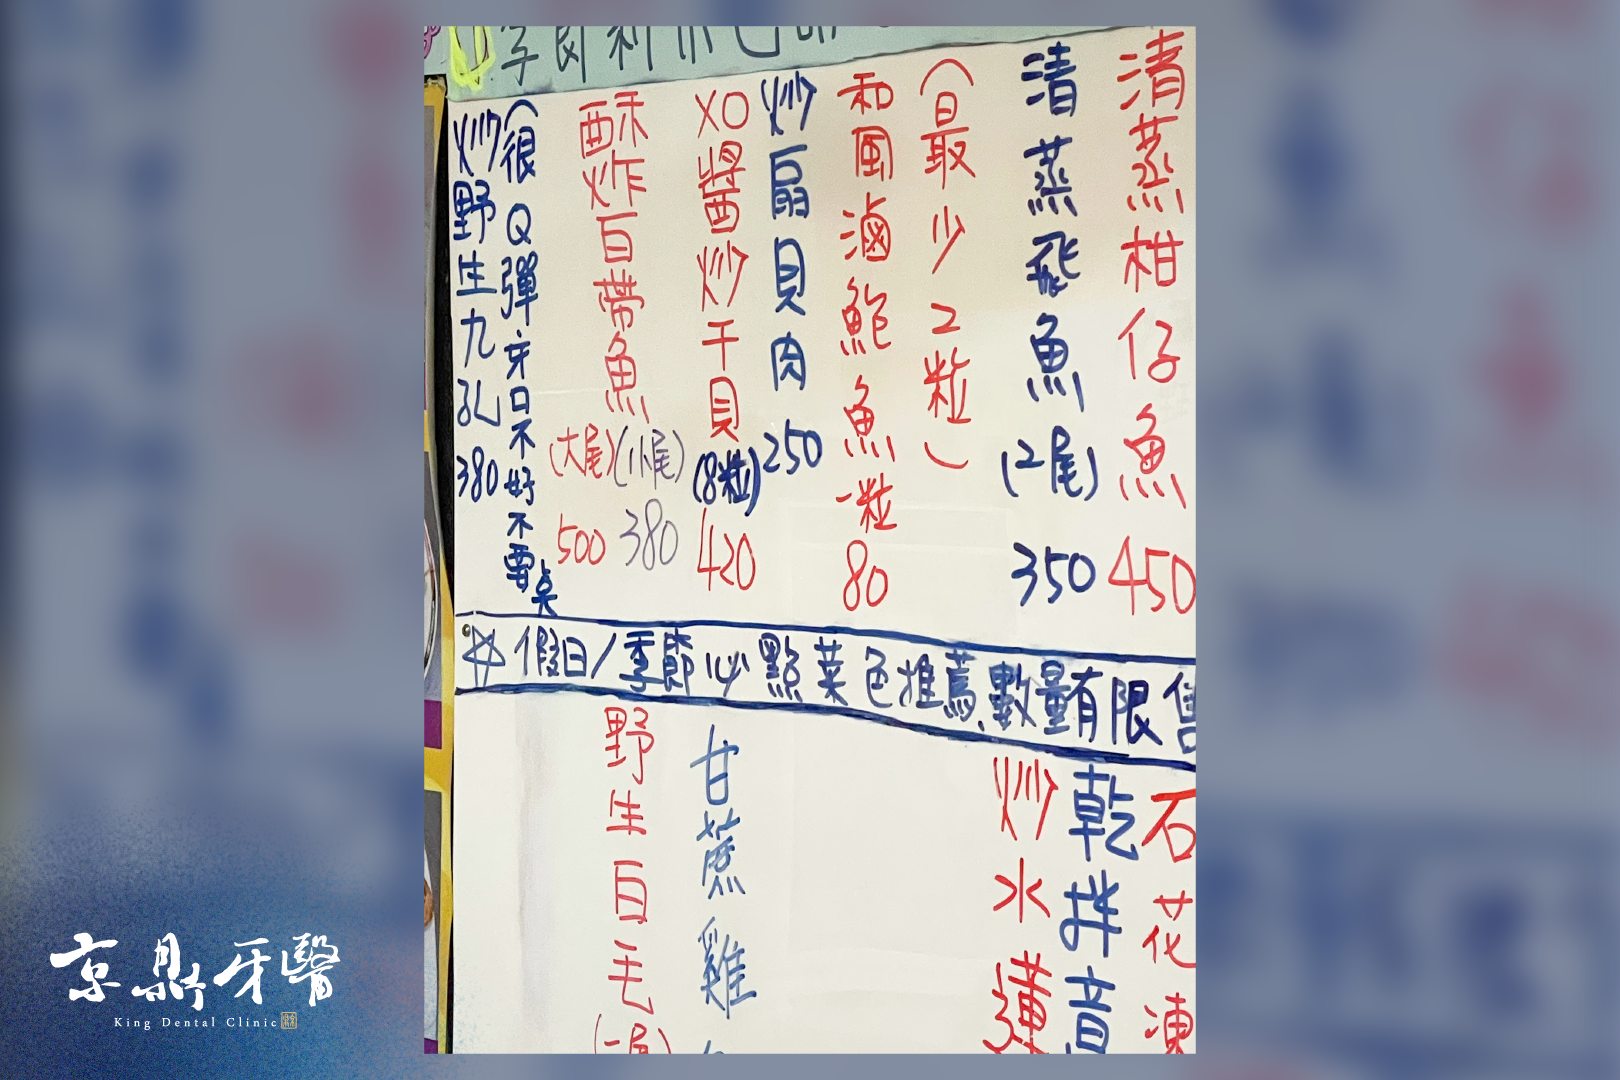 清蒸柑仔魚 450
清蒸飛魚(2尾) 350
(最少2粒)
和風滷鮑魚一粒 80
炒扇貝肉 250
XO醬炒干貝(8粒) 420
酥炸白帶魚
(小尾) 380
(大尾) 500
(很Q彈牙口不好不要点
炒野生九孔 380
☆假日/季節必點菜色推薦,數量有限售
石花凍
乾拌音
炒水蓮
甘蔗雞
野生白毛(一尾)
京鼎牙醫
King Dental Clinic